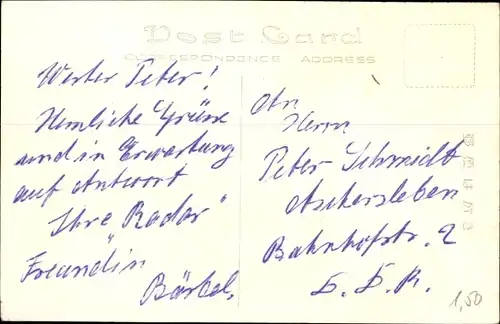 Post Card
CORRESPONDENCE ADDRESS
Werter Peter!
Herzliche Grüsse
und in Erwartung
auf Antwort
Ihre "Radar"
Freundin
Bärbel.
An
Herrn
Peter Schmidt
Aschersleben
Bahnhofstr. 2
D. D. R.
1,50